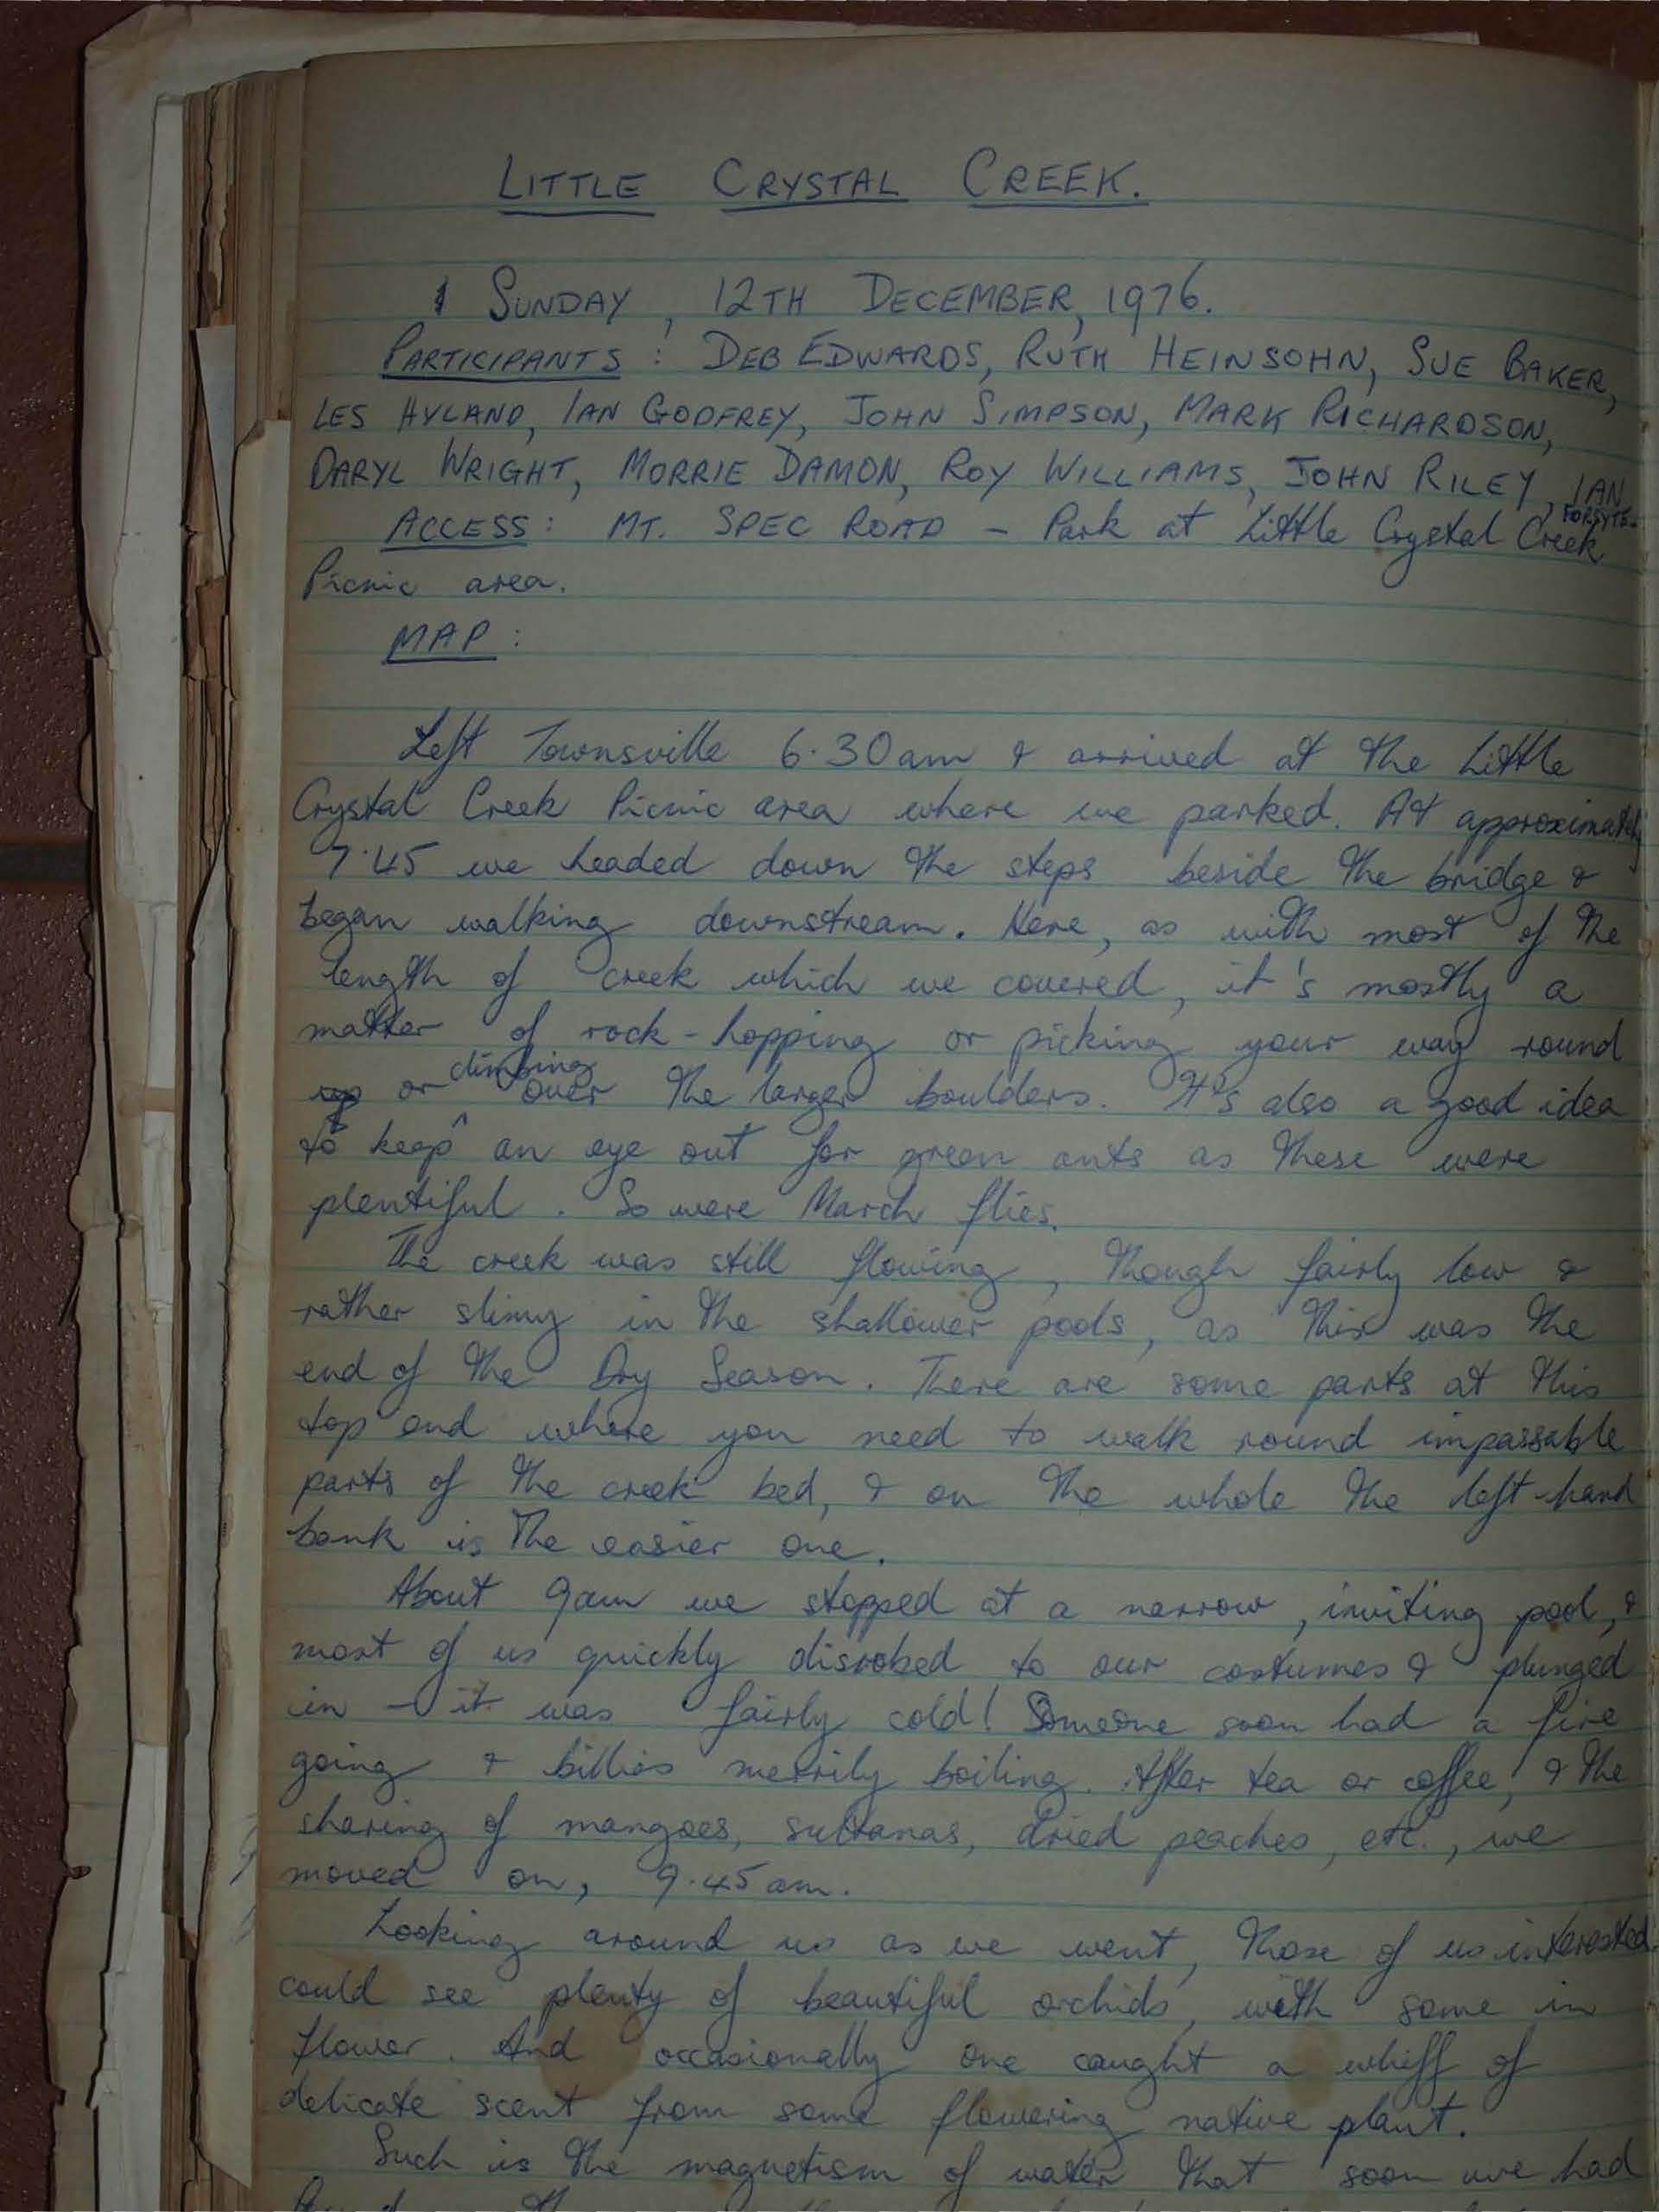 LITTLE CRYSTAL CREEK.
SUNDAY, 12TH DECEMBER, 1976.
PARTICIPANTS: DEB EDWARDS, RUTH HEINSOHN, SUE BAKER,
LES HYLAND, IAN GODFREY, JOHN SIMPSON, MARK RICHARDSON,
DARYL WRIGHT, MORRIE DAMON, ROY WILLIAMS, JOHN RILEY, IAN FORSYTE.
ACCESS: MT. SPEC ROAD - Park at Little Crystal Creek
Picnic area.
MAP:
Left Townsville 6.30am & arrived at the Little
Crystal Creek Picnic area where we parked. At approximately
7.45 we headed down the steps beside the bridge &
began walking downstream. Here, as with most of the
length of creek which we covered, it's mostly a
matter of rock-hopping or picking your way round
or climbing over the larger boulders. It's also a good idea
to keep an eye out for green ants as these were
plentiful. So were March flies.
The creek was still flowing, though fairly low &
rather slimy in the shallower pools, as this was the
end of the Dry Season. There are some parts at this
top end where you need to walk round impassable
parts of the creek bed, & on the whole the left-hand
bank is the easier one.
About 9am we stopped at a narrow, inviting pool, &
most of us quickly disrobed to our costumes & plunged
in - it was fairly cold! Someone soon had a fire
going & billies merrily boiling. After tea or coffee, & the
sharing of mangoes, sultanas, dried peaches, etc., we
moved on, 9.45am.
Looking around us as we went, those of us interested
could see plenty of beautiful orchids, with some in
flower. And occasionally one caught a whiff of
delicate scent from some flowering native plant.
Such is the magnetism of water that soon we had